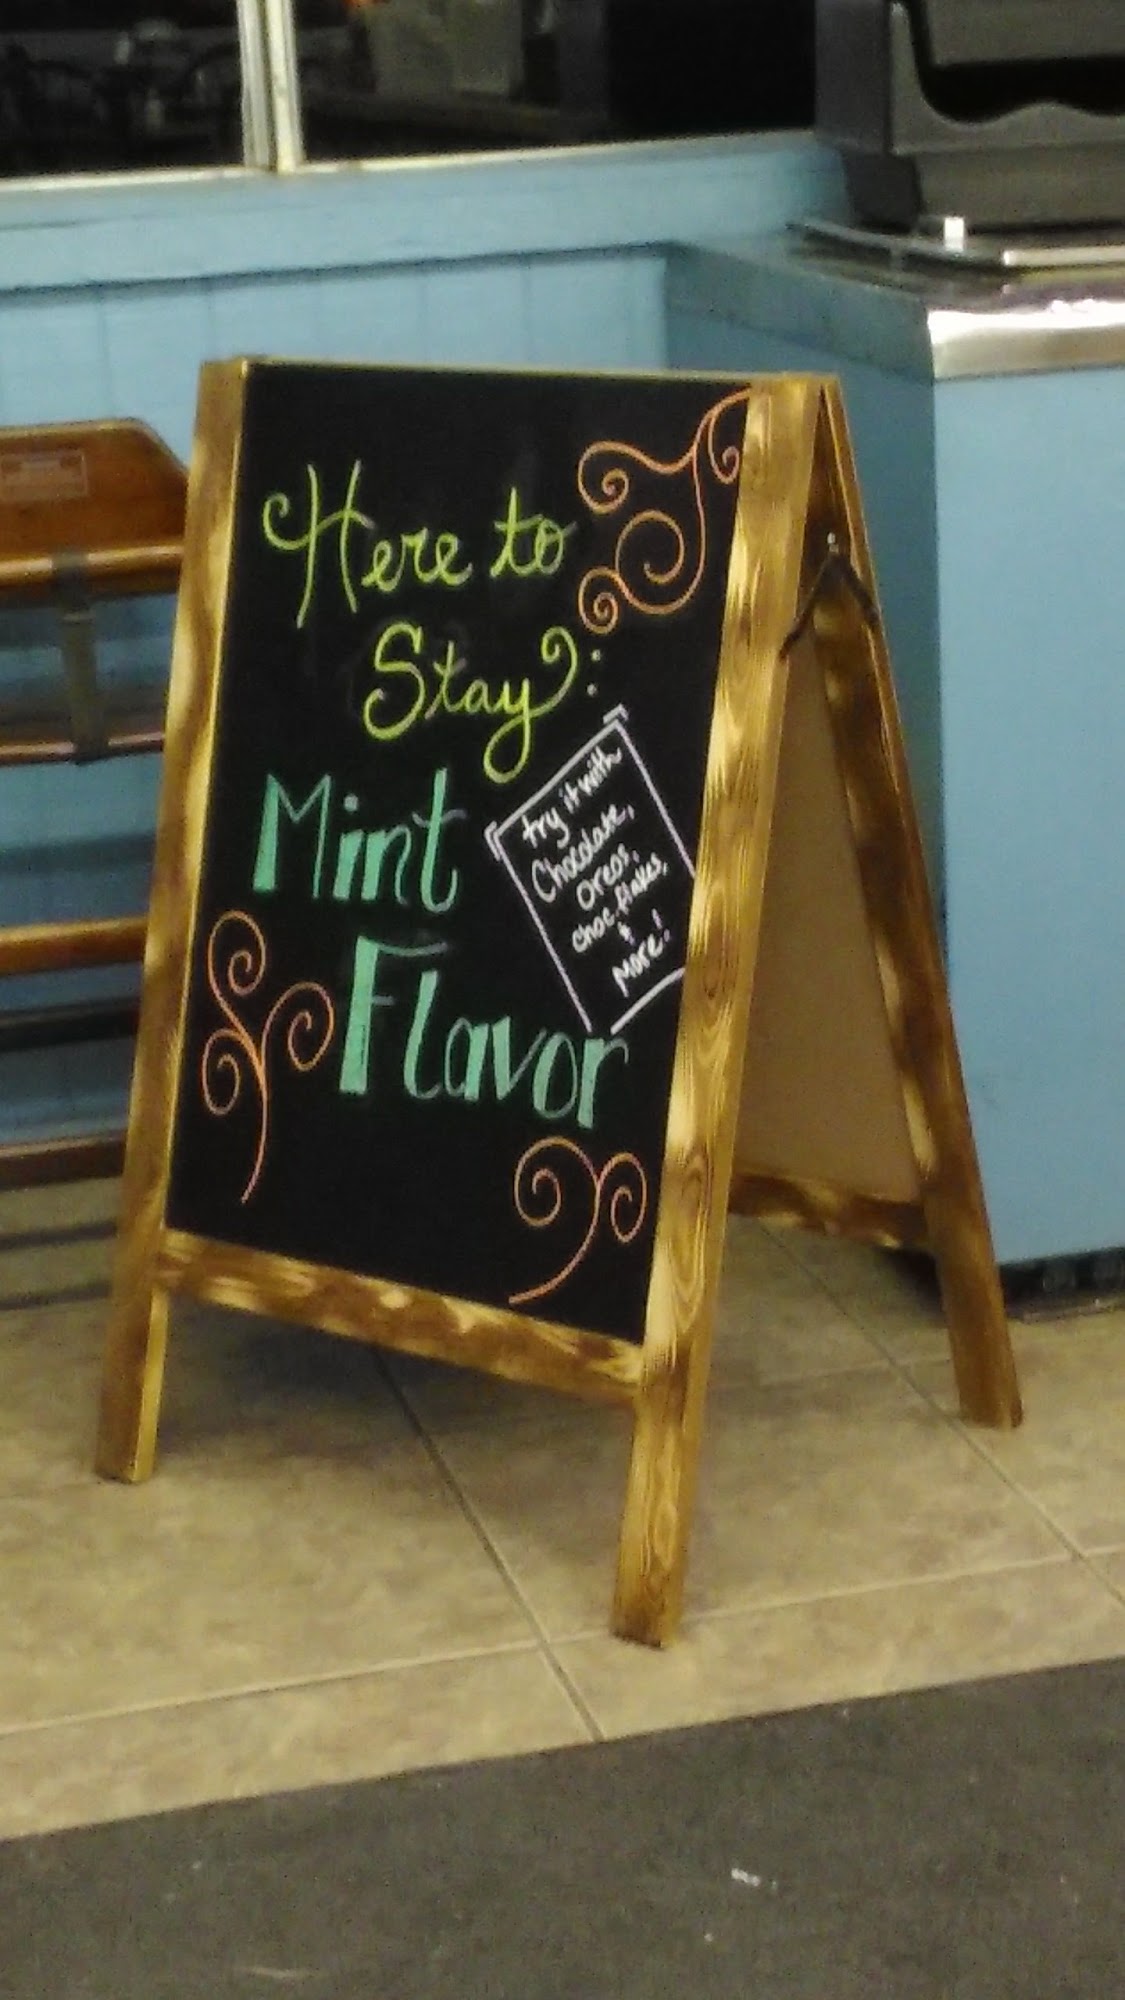 Here to
Stay:
Mint
Flavor
try it with
Chocolate,
oreos,
choc. flakes,
&
more!